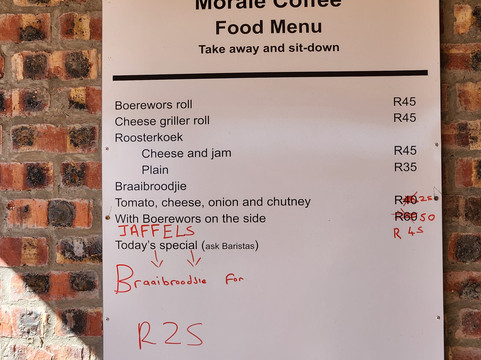 Morale Coffee
Food Menu
Take away and sit-down
Boerewors roll R45
Cheese griller roll R45
Roosterkoek
Cheese and jam R45
Plain R35
Braaibroodjie
Tomato, cheese, onion and chutney R40 25
With Boerewors on the side R60 50
JAFFELS R 45
Today's special (ask Baristas)
Braaibroodjie For
R25